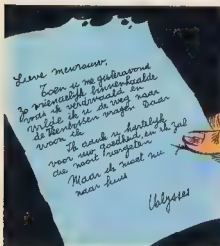 Lieve mevrouw,
Toen u me gisteravond
zo vriendelijk binnenhaalde
was ik verdwaald en
wilde ik u de weg naar
de Veenbossen vragen. Daar
woon ik.
Ik dank u hartelijk
voor uw goedheid, en ik zal
die nooit vergeten.
Maar ik moet nu
naar huis
Ulysses